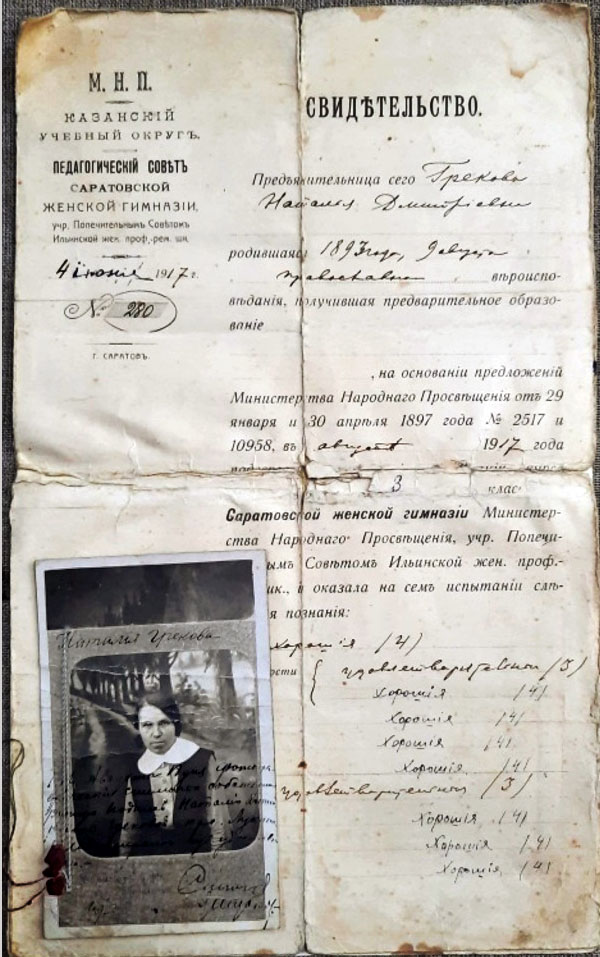 М. Н. П.
КАЗАНСКІЙ
УЧЕБНЫЙ ОКРУГЪ.
ПЕДАГОГИЧЕСКІЙ СОВѢТЪ
САРАТОВСКОЙ
ЖЕНСКОЙ ГИМНАЗІИ,
учр. Попечительнымъ Совѣтомъ
Ильинской жен. проф.-рем. шк.
4 іюня 1917 г.
№ 280
Г. САРАТОВЪ.
СВИДѢТЕЛЬСТВО.
Предъявительница сего Грекова
Наталья Дмитріевна
родившаяся 1897 года, 9 августа
православнаго вѣроиспо-
вѣданія, получившая предварительное образо-
ваніе
, на основаніи предложеній
Министерства Народнаго Просвѣщенія отъ 29
января и 30 апрѣля 1897 года № 2517 и
10958, въ августѣ 1917 года
3 клас
Саратовской женской гимназіи Министер-
ства Народнаго Просвѣщенія, учр. Попечи-
нымъ Совѣтомъ Ильинской жен. проф.-
ик., и оказала на семъ испытаніи слѣ-
я познанія:
хорошія (4)
ности удовлетворительныя (3)
хорошія (4)
хорошія (4)
хорошія (4)
хорошія (4)
удовлетворительныя (3)
хорошія (4)
хорошія (4)
хорошія (4)
Наталія Грекова